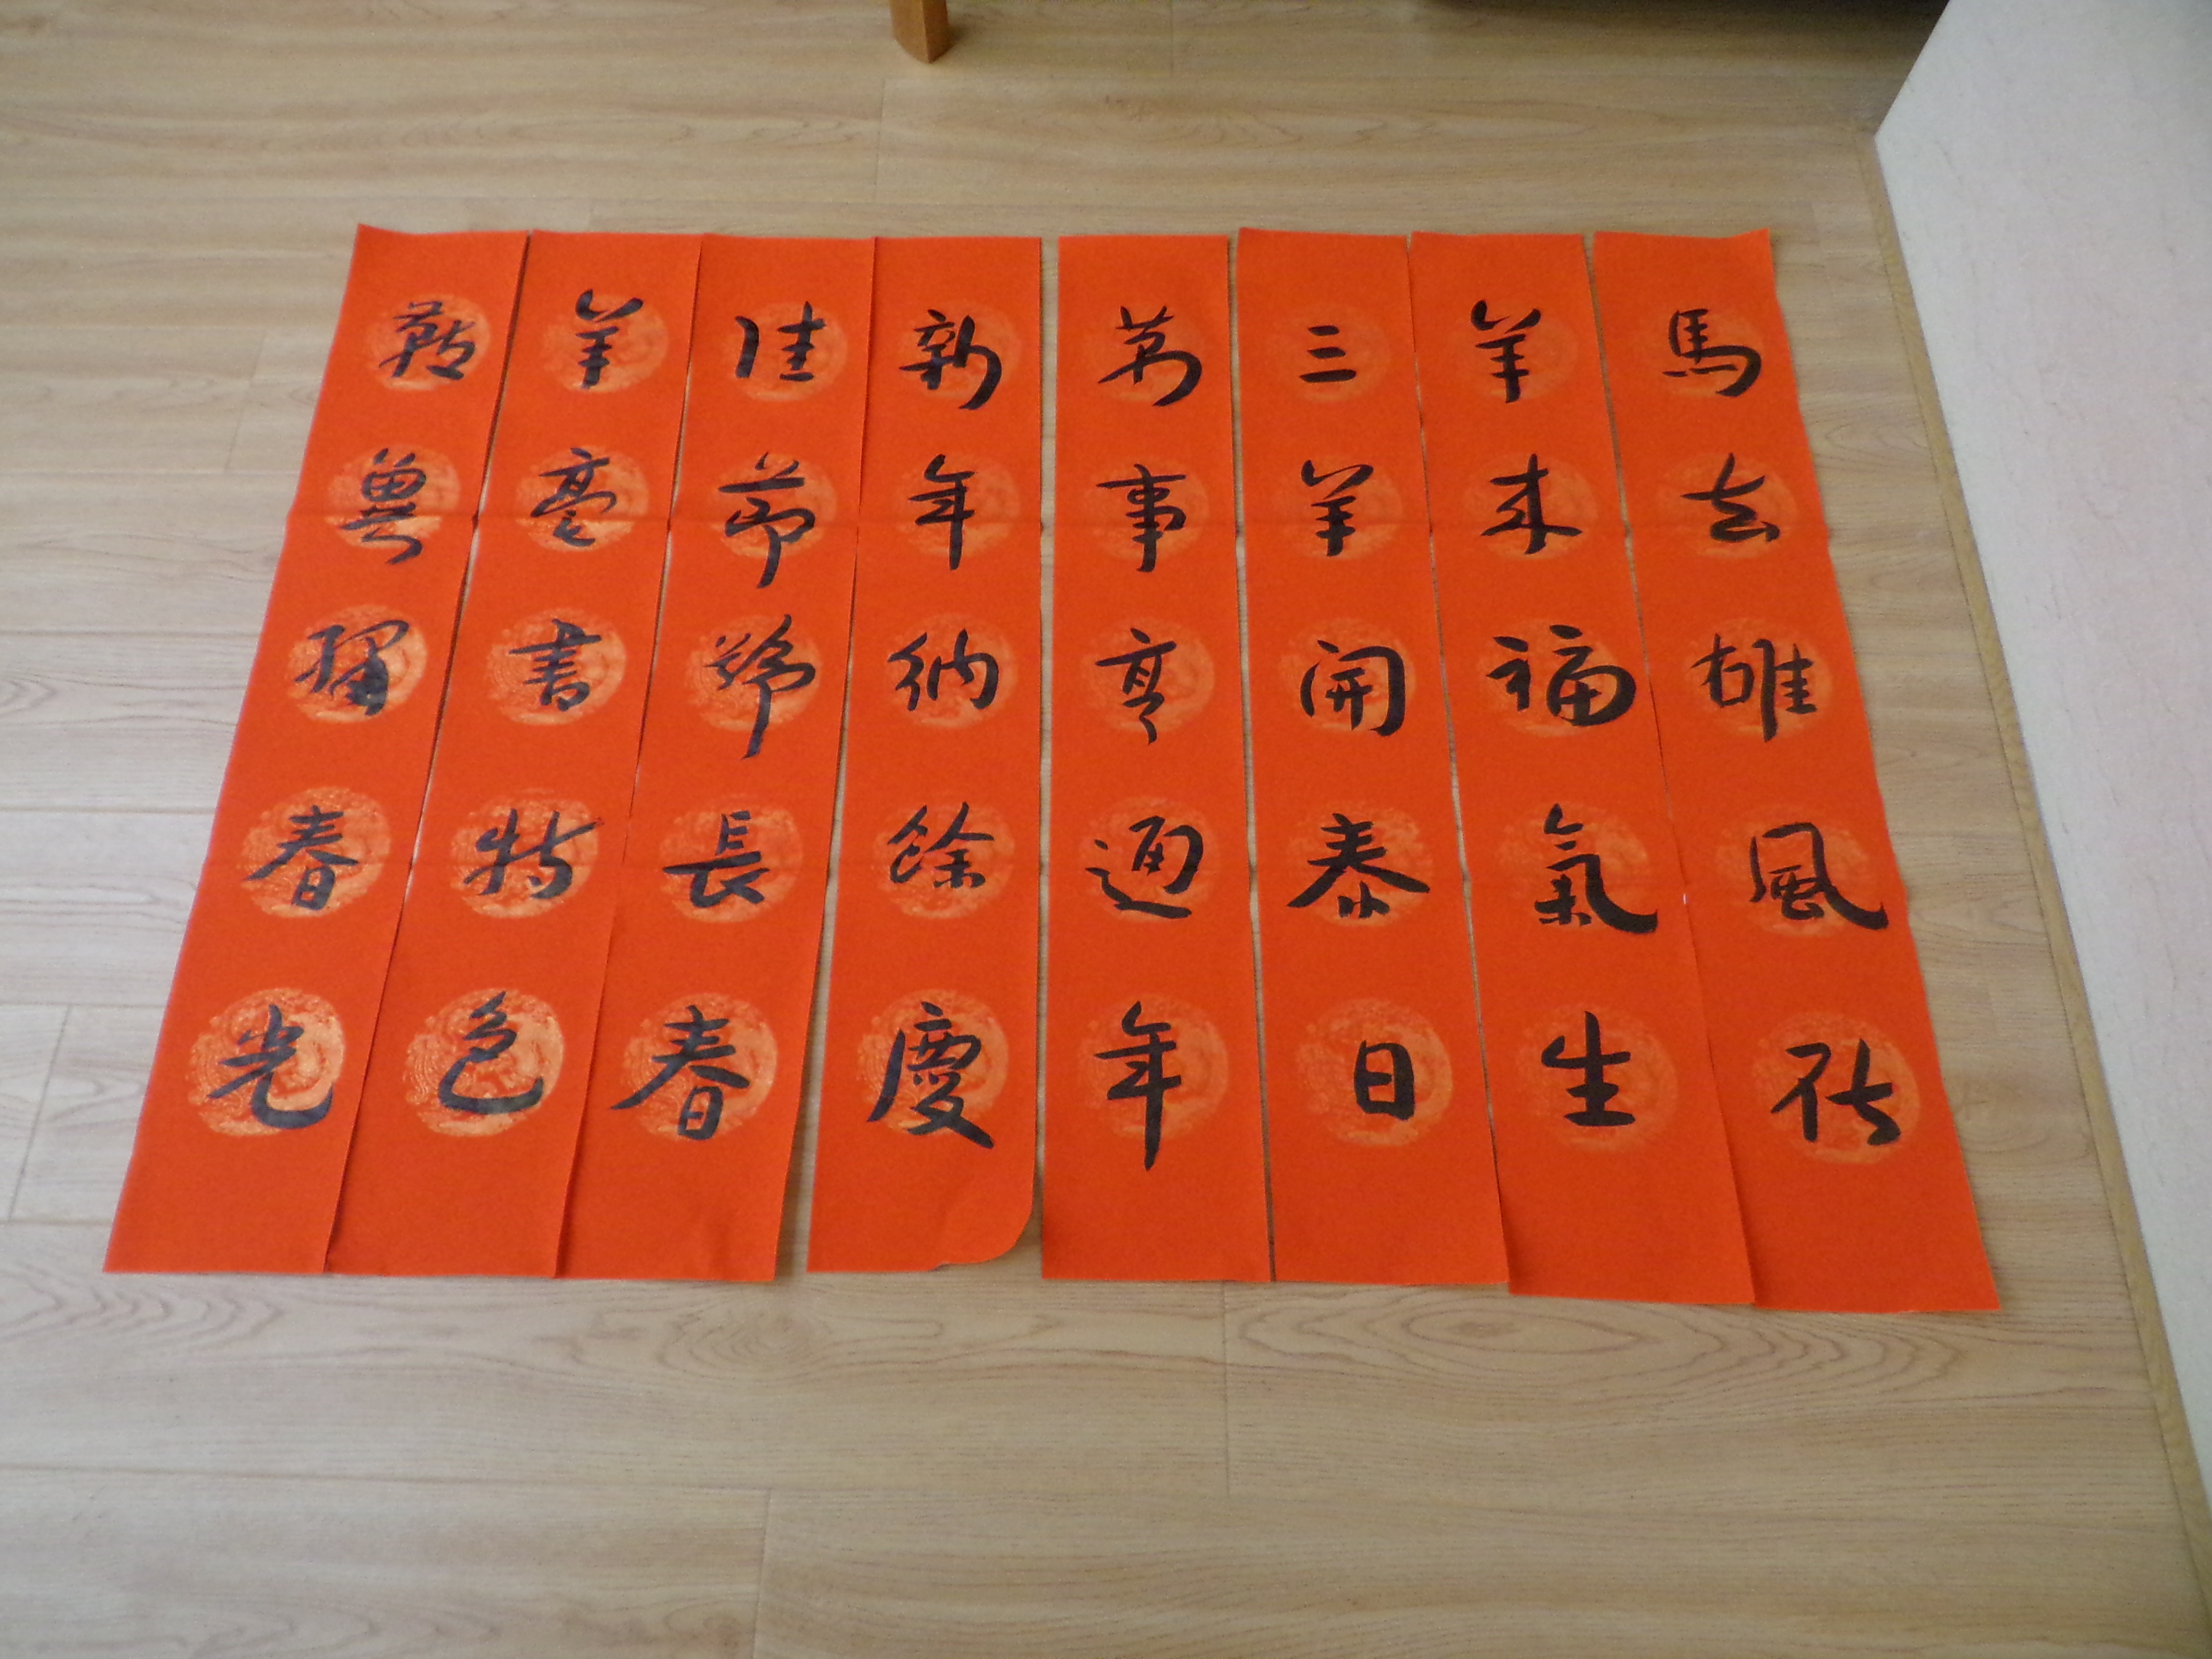 馬去雄風在
羊来福氣生
三羊開泰日
萬事亨通年
新年納餘慶
佳節號長春
羊毫書特色
春光